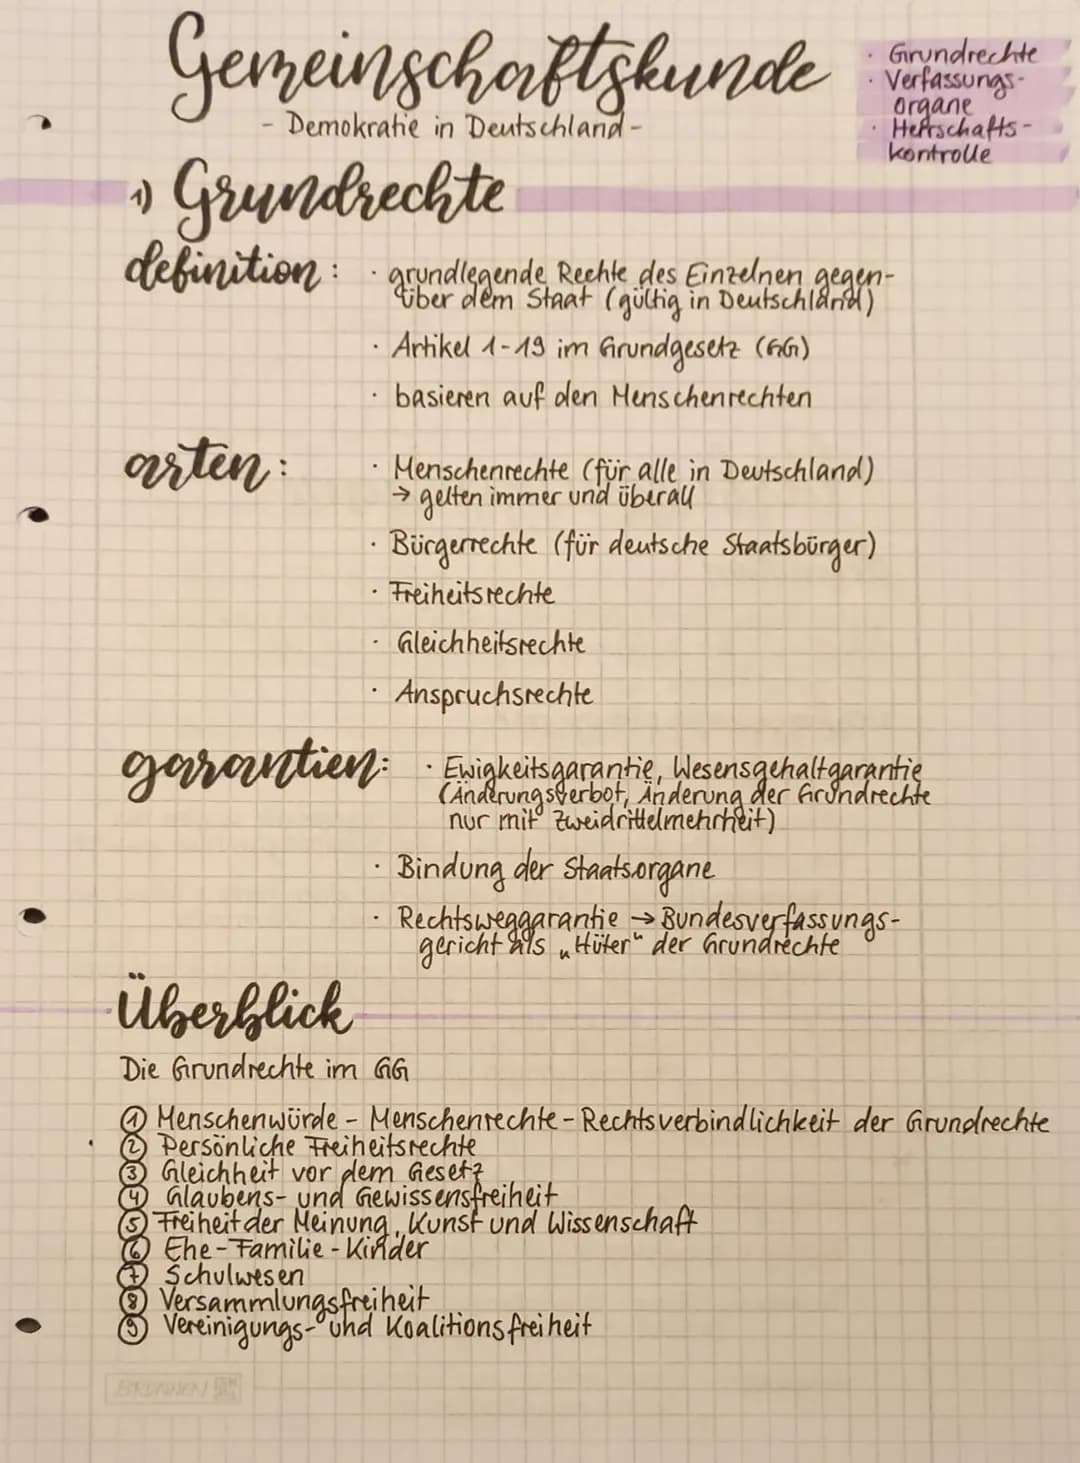 Gemeinschaftskunde
- Demokratie in Deutschland -
· Grundrechte
· Verfassungs-
organe
· Herrschafts-
kontrolle
1) Grundrechte
definition:
· grundlegende Rechte des Einzelnen gegen-
über dem Staat (gültig in Deutschland)
· Artikel 1-19 im Grundgesetz (GG)
· basieren auf den Menschenrechten
arten:
· Menschenrechte (für alle in Deutschland)
→ gelten immer und überall
· Bürgerrechte (für deutsche Staatsbürger)
· Freiheitsrechte
· Gleichheitsrechte
· Anspruchsrechte
garantien:
· Ewigkeitsgarantie, Wesensgehaltgarantie
(Änderungsverbot, Änderung der Grundrechte
nur mit Zweidrittelmehrheit)
· Bindung der Staatsorgane
· Rechtsweggarantie → Bundesverfassungs-
gericht als „Hüter" der Grundrechte
Überblick
Die Grundrechte im GG
① Menschenwürde - Menschenrechte - Rechtsverbindlichkeit der Grundrechte
② Persönliche Freiheitsrechte
③ Gleichheit vor dem Gesetz
④ Glaubens- und Gewissensfreiheit
⑤ Freiheit der Meinung, Kunst und Wissenschaft
⑥ Ehe - Familie - Kinder
⑦ Schulwesen
⑧ Versammlungsfreiheit
⑨ Vereinigungs- und Koalitionsfreiheit
BRUNNEN